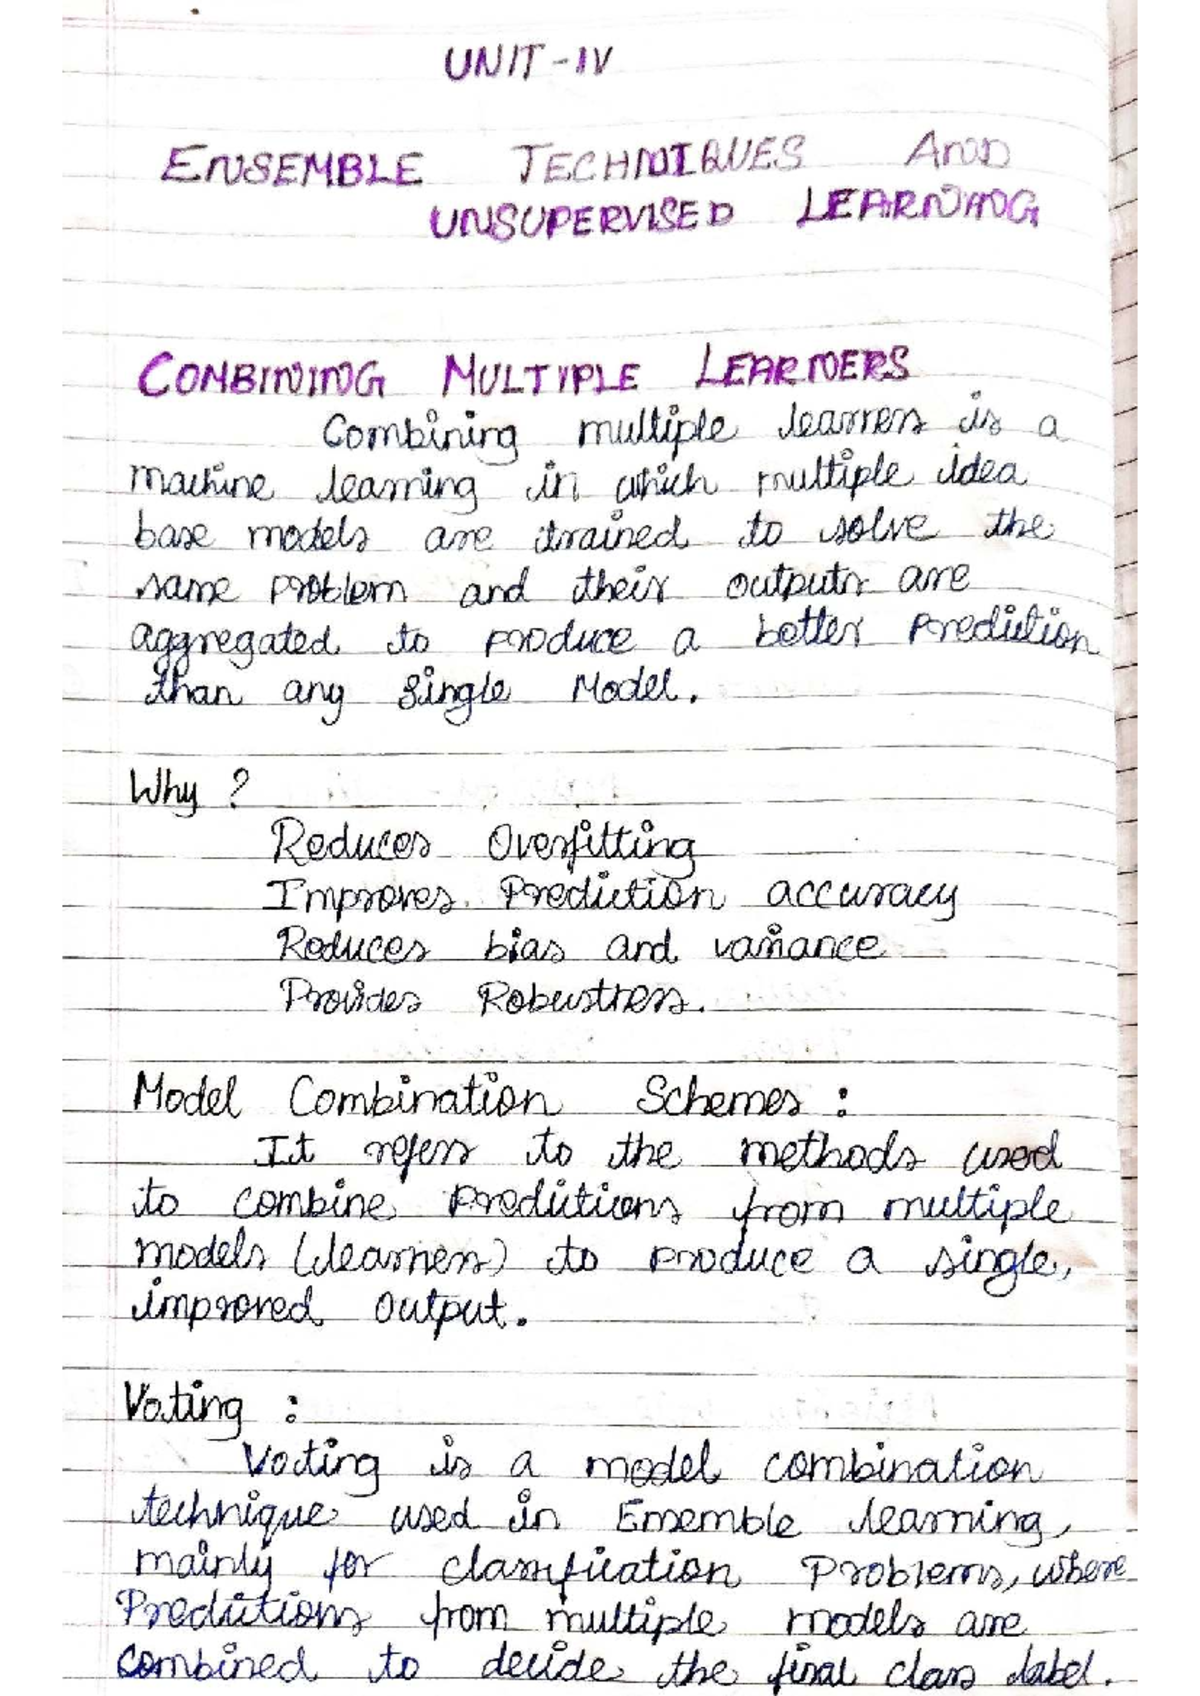 UNIT-IV
ENSEMBLE TECHNIQUES AND
UNSUPERVISED LEARNING
COMBINING MULTIPLE LEARNERS
Combining multiple learners is a
machine learning in which multiple idea
base models are trained to solve the
same problem and their outputs are
aggregated to produce a better prediction
than any single Model.
Why ?
Reduces Overfitting
Improves Prediction accuracy
Reduces bias and variance
Provides Robustness.
Model Combination Schemes :
It refers to the methods used
to combine predictions from multiple
models (learners) to produce a single,
improved output.
Voting :
Voting is a model combination
technique used in Ensemble learning,
mainly for classification Problems, where
Predictions from multiple models are
combined to decide the final class label.